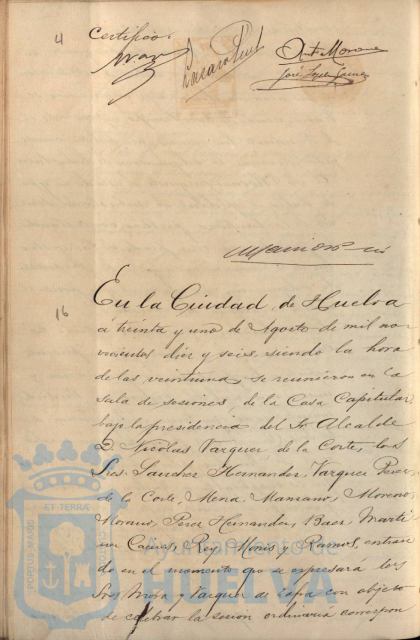 4
Certifico.
Ant. Moreno
16
En la Ciudad de Huelva
á treinta y uno de Agosto de mil no-
vecientos diez y seis, siendo la hora
de las veintiuna, se reunieron en la
sala de sesiones de la Casa Capitular
bajo la presidencia del Sr. Alcalde
D. Nicolas Vazquez de la Corte, los
Sres. Sanchez Hernandez, Vazquez Perez,
de la Corte, Mena, Manzano, Moreno,
Perez Hernandez, Baez, Marti
nez Rey, Monis y Ramos, entran
do en el momento que se expresará los
Sres Mora y Vazquez de Zafra con objeto
de celebrar la sesión ordinaria correspon
PORTUS MARIS
ET TERRÆ
Ayuntamiento de
HUELVA